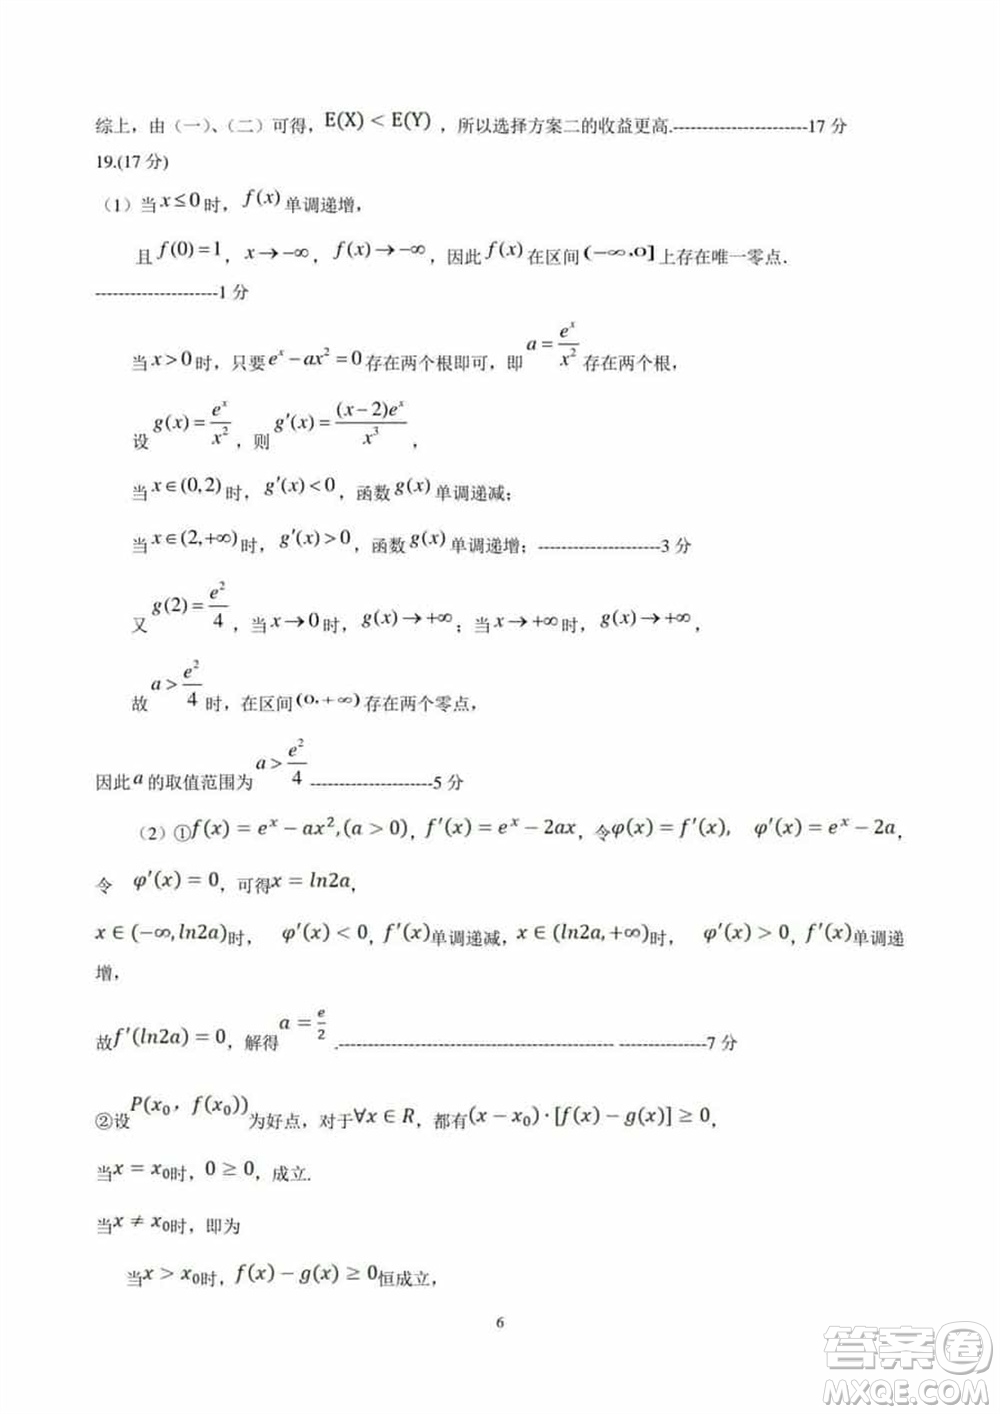 综上，由（一）、（二）可得，E(X) < E(Y)，所以选择方案二的收益更高.-----------------------17 分
19.(17 分)
（1）当 x≤0 时，f(x) 单调递增，
且 f(0)=1，x→−∞，f(x)→−∞，因此 f(x) 在区间 (−∞,0] 上存在唯一零点.
---------------------1 分
当 x>0 时，只要 eˣ−ax²=0 存在两个根即可，即 a=eˣ/x² 存在两个根，
设 g(x)=eˣ/x²，则 g′(x)=(x−2)eˣ/x³，
当 x∈(0,2) 时，g′(x)<0，函数 g(x) 单调递减；
当 x∈(2,+∞) 时，g′(x)>0，函数 g(x) 单调递增；---------------------3 分
又 g(2)=e²/4，当 x→0 时，g(x)→+∞；当 x→+∞ 时，g(x)→+∞，
故 a>e²/4 时，在区间 (0,+∞) 存在两个零点，
因此 a 的取值范围为 a>e²/4 ---------------------5 分
（2）①f(x) = eˣ − ax², (a > 0)，f′(x) = eˣ − 2ax，令φ(x) = f′(x)， φ′(x) = eˣ − 2a，
令 φ′(x) = 0，可得x = ln2a，
x ∈ (−∞, ln2a)时， φ′(x) < 0，f′(x)单调递减，x ∈ (ln2a, +∞)时， φ′(x) > 0，f′(x)单调递
增，
故f′(ln2a) = 0，解得a = e/2 .----------------------------------------------- ---------------7 分
②设P(x₀，f(x₀))为好点，对于∀x ∈ R，都有(x − x₀) · [f(x) − g(x)] ≥ 0，
当x = x₀时，0 ≥ 0，成立.
当x ≠ x₀时，即为
当x > x₀时，f(x) − g(x) ≥ 0恒成立，
6
答案卷
MXQE.COM